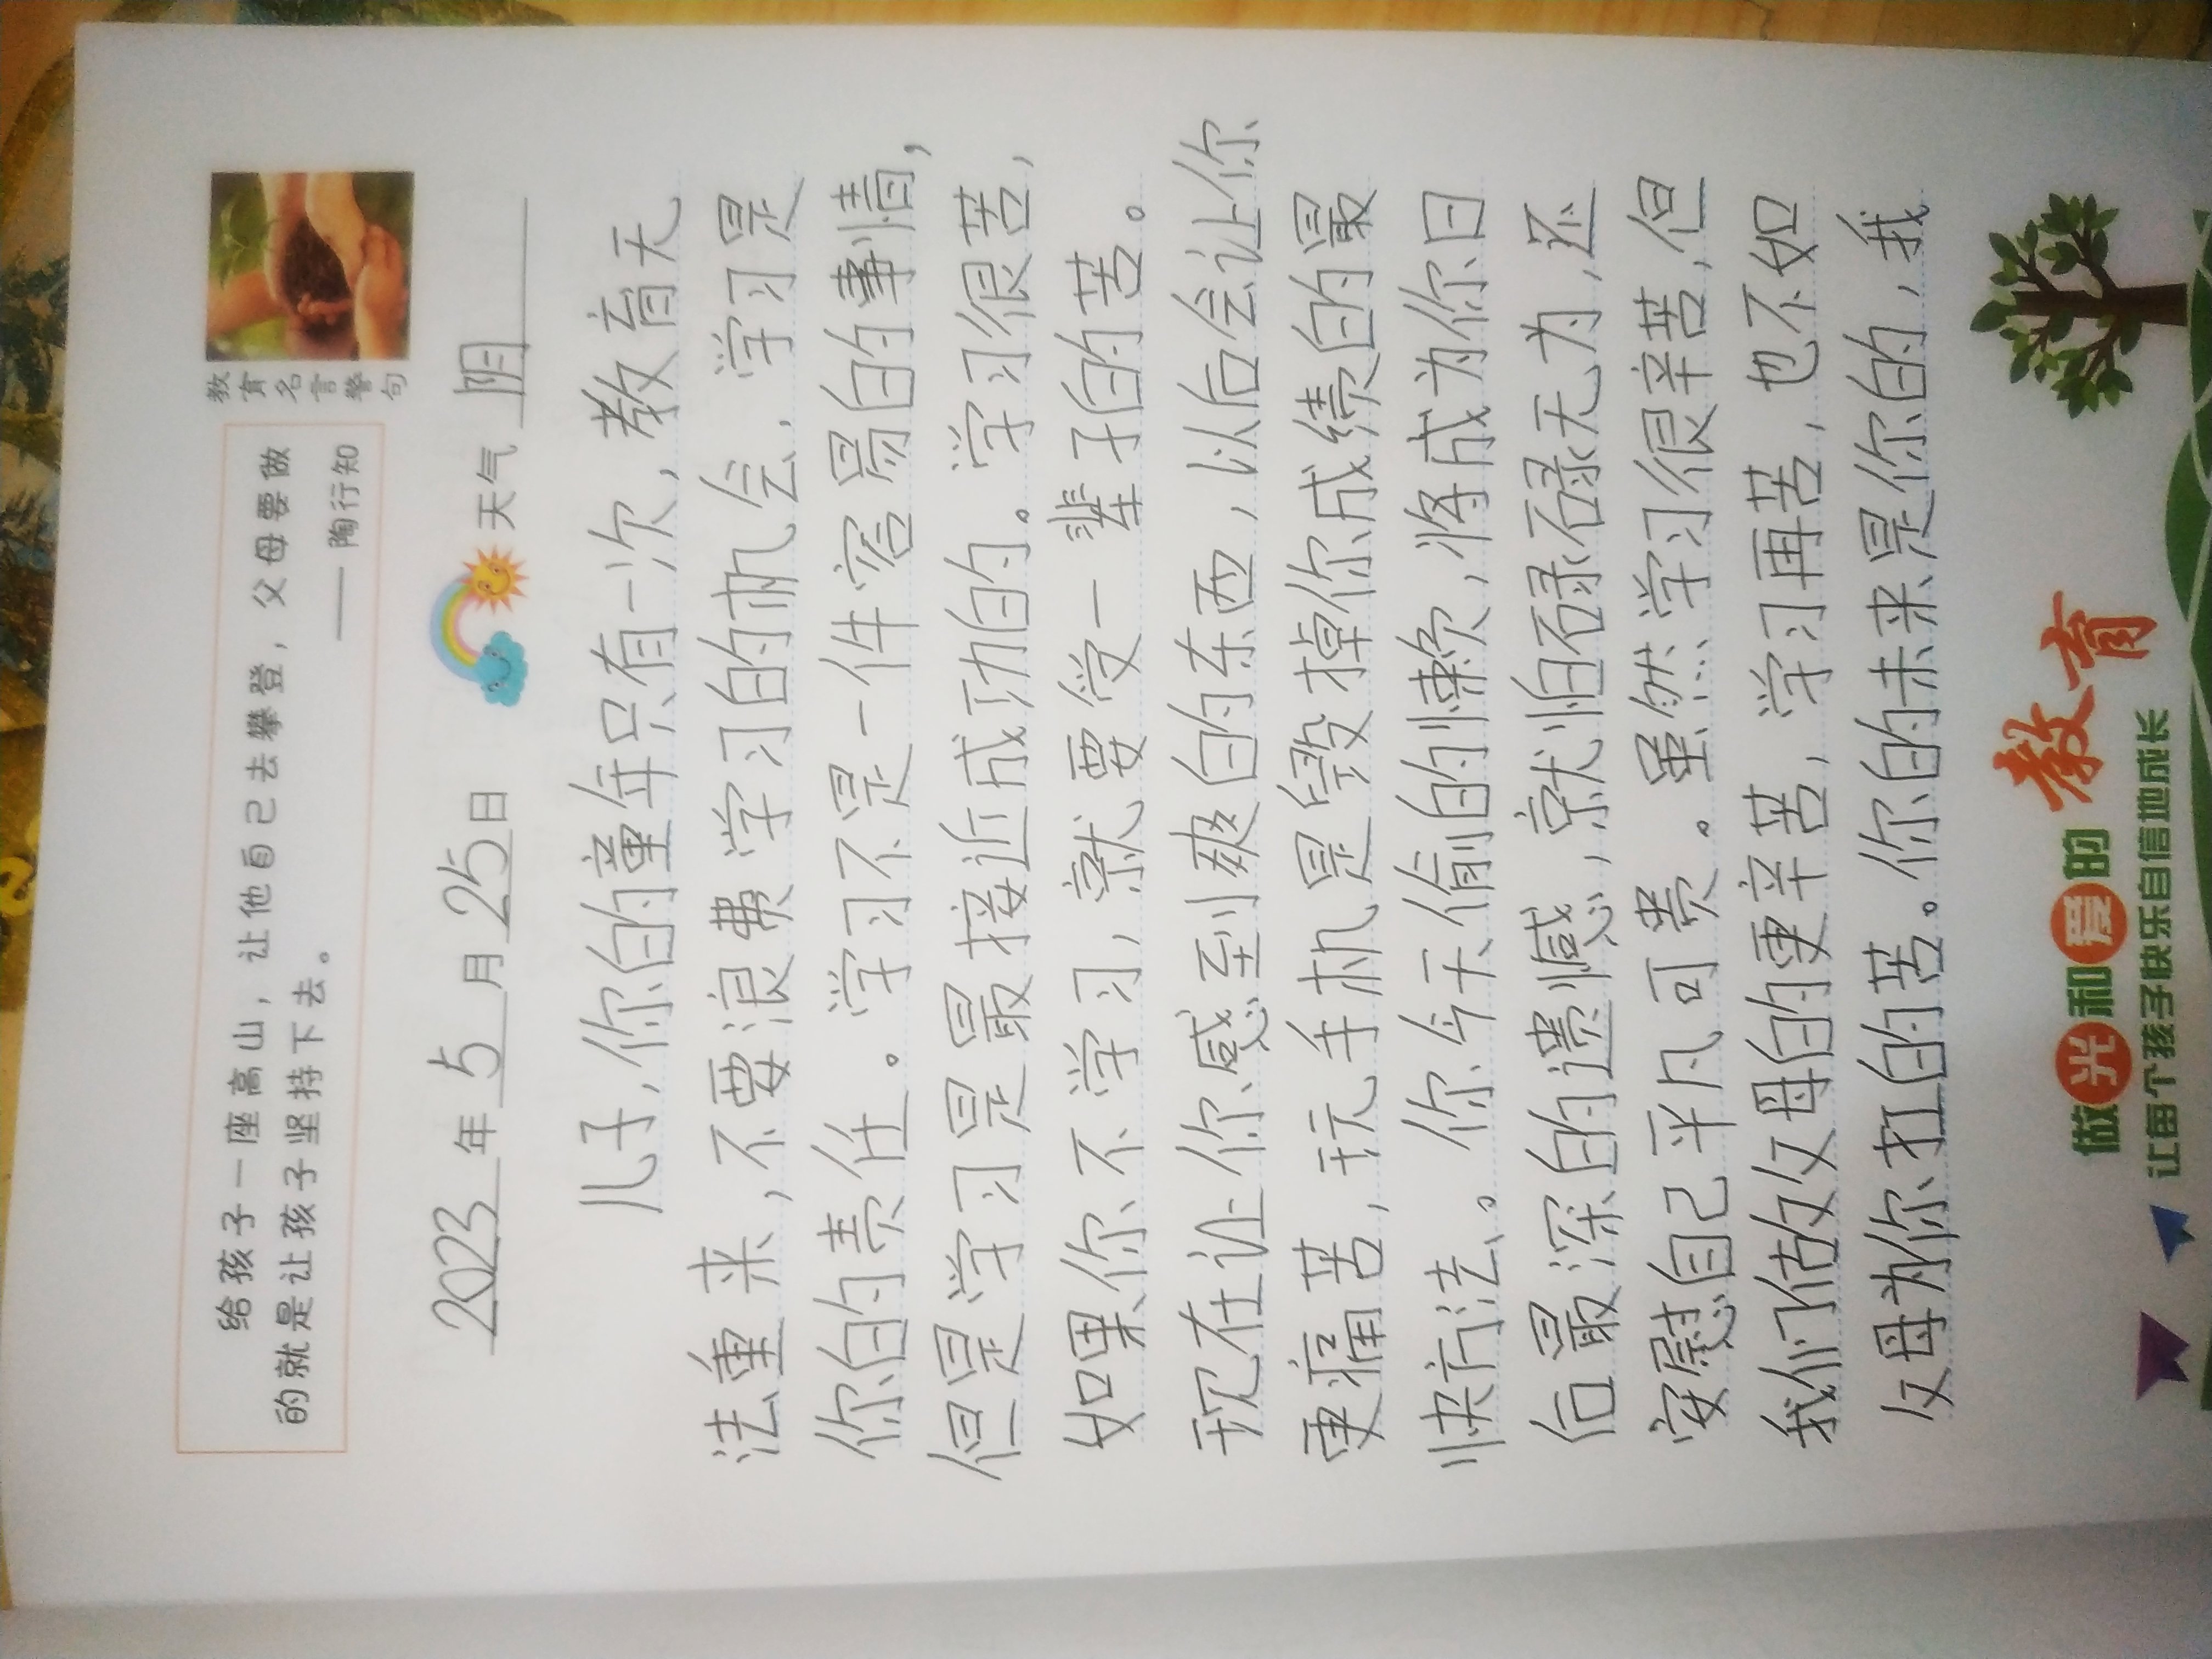 给孩子一座高山，让他自己去攀登，父母要做
的就是让孩子坚持下去。
——陶行知
教育名言警句
2023年5月25日 天气 阴
儿子，你的童年只有一次，教育无
法重来，不要浪费学习的机会，学习是
你的责任。学习不是一件容易的事情，
但是学习是最接近成功的。学习很苦，
如果你不学习，就要受一辈子的苦。
现在让你感到爽的东西，以后会让你
更痛苦，玩手机是毁掉你成绩的最
快方法。你今天偷的懒，将成为你日
后最深的遗憾，就怕碌碌无为，还
安慰自己平凡可贵。虽然学习很辛苦，但
我们做父母的更辛苦，学习再苦，也不如
父母为你扛的苦。你的未来是你的，我
做光和爱的教育
让每个孩子快乐自信地成长